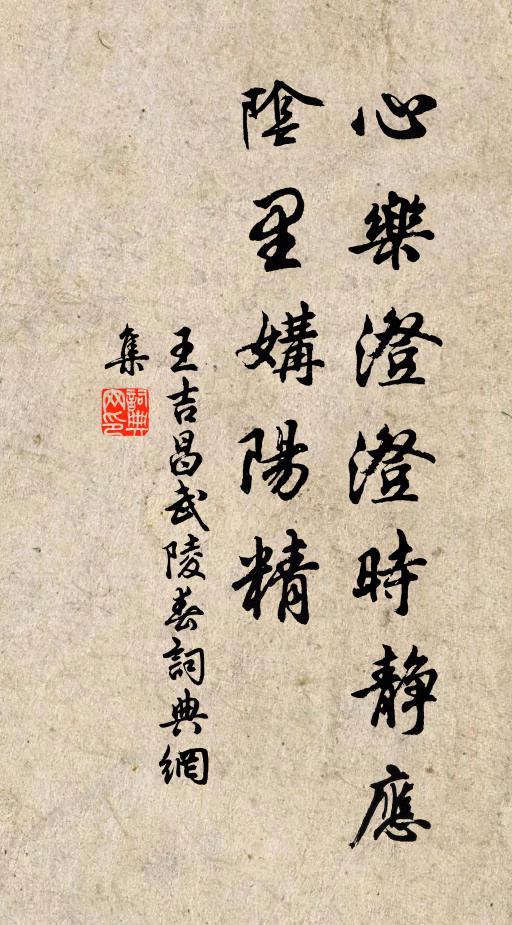 心樂澄澄時静應
陰里媾陽精
王吉昌武陵春詞典網
集
詞典
网印